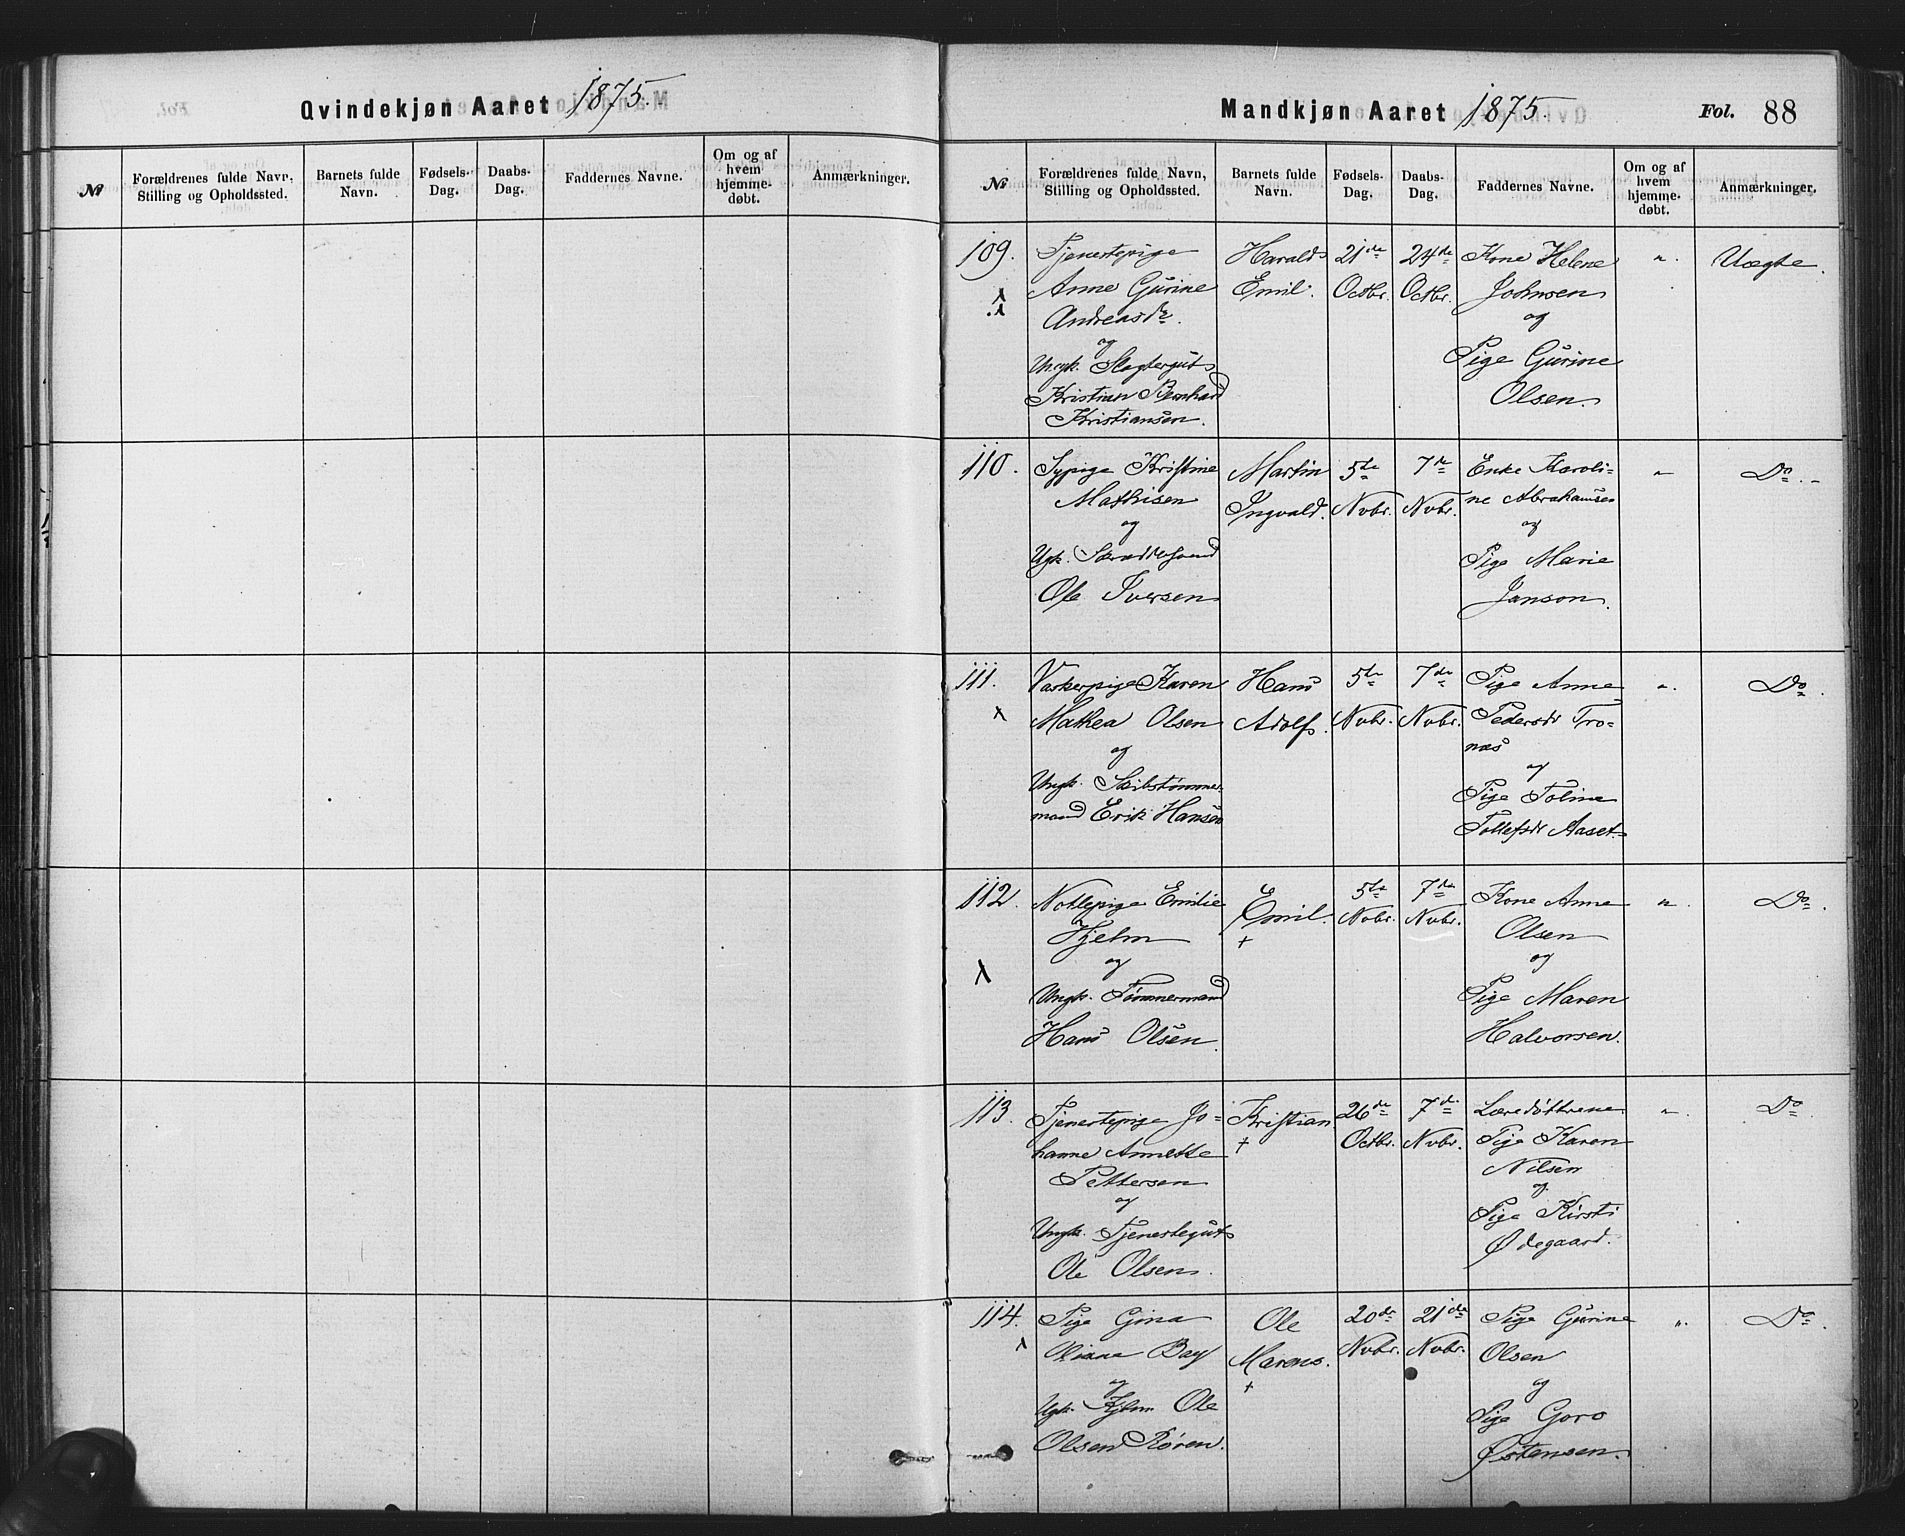 Qvindekjøn Aaret 1875.
№
Forældrenes fulde Navn,
Stilling og Opholdssted.
Barnets fulde
Navn.
Fødsels-
Dag.
Daabs-
Dag.
Faddernes Navne.
Om og af
hvem
hjemme-
døbt.
Anmærkninger.
Mandkjøn Aaret 1875.
Fol. 88
№
Forældrenes fulde Navn,
Stilling og Opholdssted.
Barnets fulde
Navn.
Fødsels-
Dag.
Daabs-
Dag.
Faddernes Navne.
Om og af
hvem
hjemme-
døbt.
Anmærkninger.
109.
Tjenestepige
Anne Gurine
Andreasdr.
og
Ungk. Slagtergut
Kristian Bernhard
Kristiansen.
Harald
Emil.
21de
Octbr.
24de
Octbr.
Kone Helene
Johnsen
og
Pige Gurine
Olsen.
".
Uægte.
110.
Sypige Kristine
Mathisen
og
Ugk. Skræddersvend
Ole Iversen
Martin
Ingvald.
5te
Nvbr.
7de
Nvbr.
Enke Karoli-
ne Abrahamsen
og
Pige Marie
Janson.
"
Do. -
111.
Vaskerpige Karen
Mathea Olsen
og
Ungk. Skibstømmer-
mand Erik Hansen
Hans
Adolf.
5te
Nvbr.
7de
Nvbr.
Pige Anne
Pedersdr Tro-
næs
og
Pige Toline
Tollefsdr Aaset.
".
Do.
112.
Emilie
Hjelm
og
Ungk. Tømmermand
Hans Olsen.
Emil.
+
5te
Nvbr.
7de
Nvbr.
Kone Anne
Olsen
og
Pige Maren
Halvorsen.
".
Do.
113.
Tjenestepige Jo-
hanne Annette
Pettersen
og
Ungk. Tjenestegut
Ole Olsen.
Kristian
+
26de
Octbr.
7de
Nvbr.
Pige Karen
Nilsen
og
Pige Kirsti
Ødegaard.
".
Do
114.
Pige Gina
Bay
og
Ugk. Ole
Olsen Røren.
Ole
Marens.
+
20de
Nvbr.
21de
Nvbr.
Pige Gurine
Olsen
og
Pige Goro
Østensen.
".
Do.